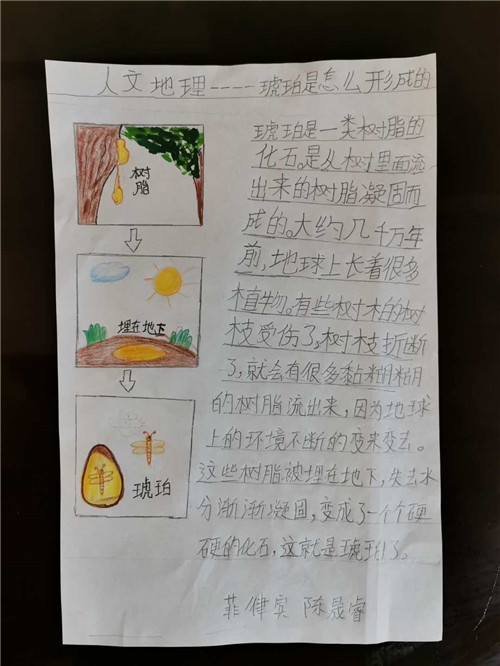 人文地理----琥珀是怎么形成的
树
脂
埋在地下
琥珀
琥珀是一类树脂的
化石。是从树里面流
出来的树脂凝固而
成的。大约几千万年
前,地球上长着很多
植物。有些树木的树
枝受伤了,树枝折断
了,就会有很多黏糊糊
的树脂流出来,因为地球
上的环境不断的变来变去。
这些树脂被埋在地下,失去水
分渐渐凝固,变成了一个个硬
硬的化石,这就是琥珀了。
菲律宾 陈晟睿